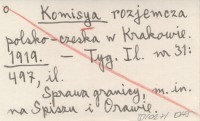 Komisya rozjemcza
polsko-czeska w Krakowie.
1919. — Tyg. Il. nr 31:
497, il.
Sprawa granicy, m. in.
na Spiszu i Orawie.